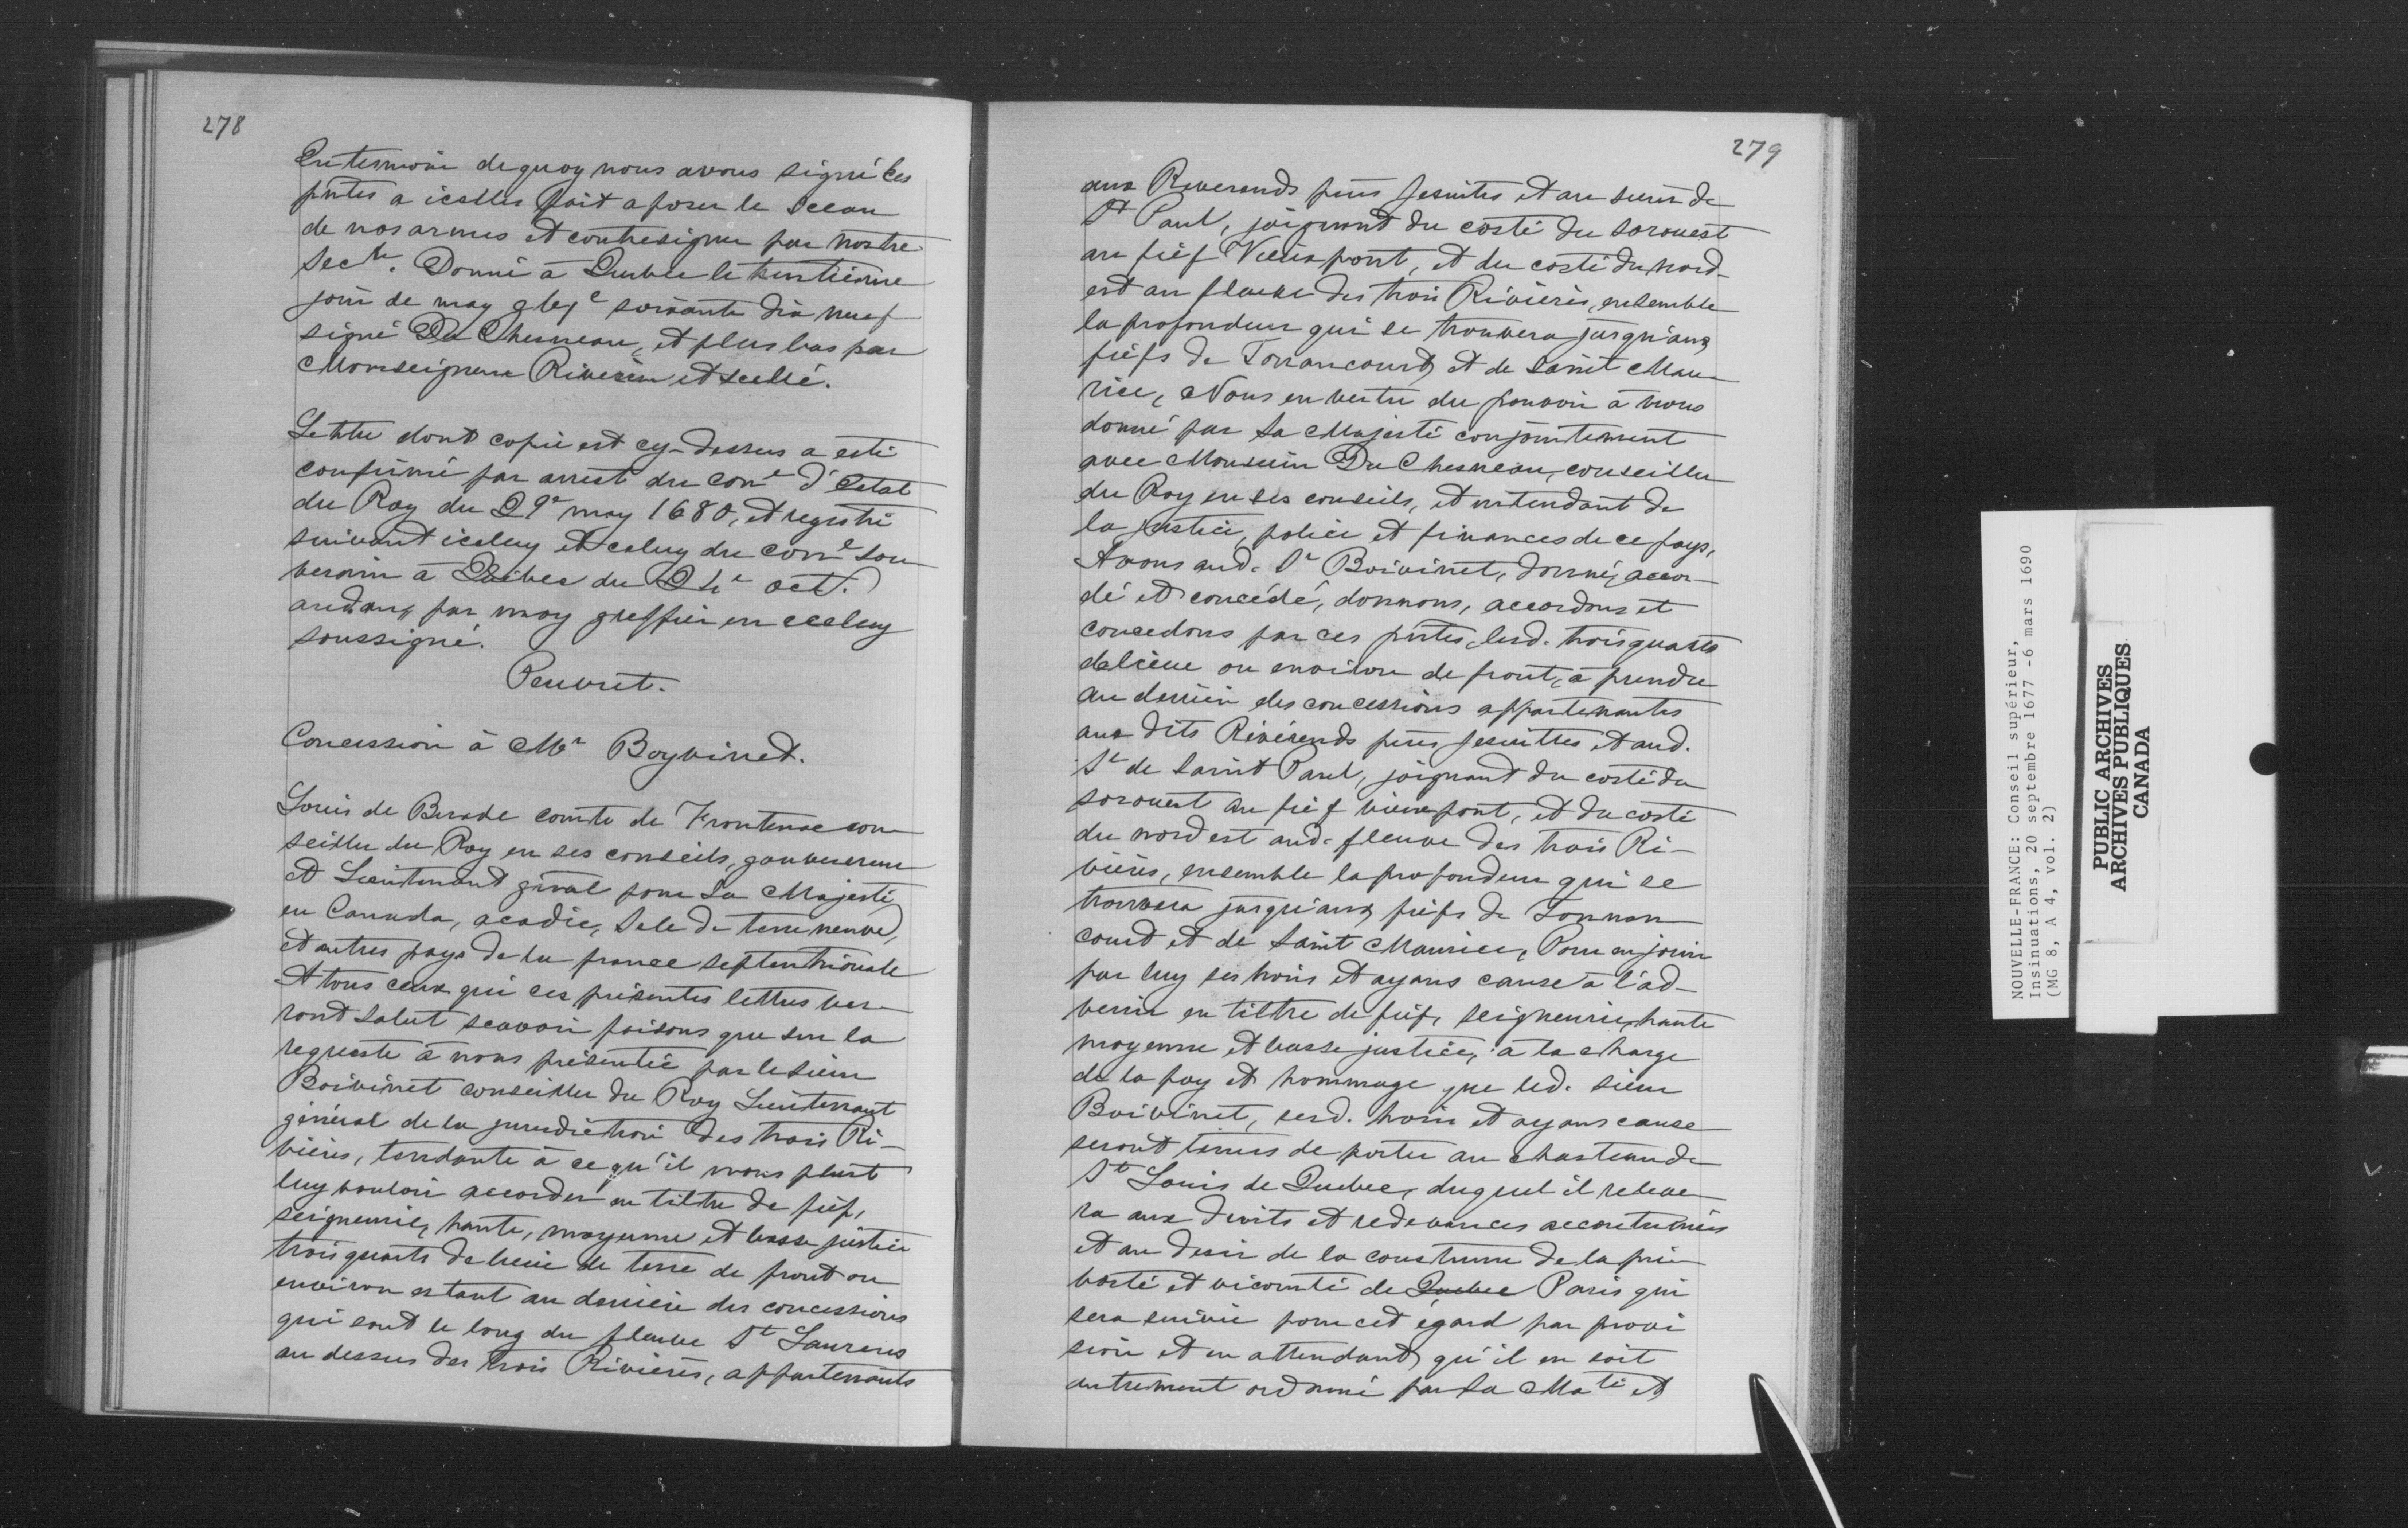 278
En tesmoin de quoy nous avons signé les
pntes a icelles fait aposer le sceau
de nos armes et contresigner par nostre
Secre. Donné à Quebec le trentiesme
jour de may gbjc soixante dix neuf
signé Du Chesneau, et plus bas par
Monseigneur Riverin et scellé.
Le titre dont copie est cy-dessus a esté
confirmé par arrest du conel d'Estat
du Roy du 29e may 1680, et registré
suivant iceluy et celuy du conel sou
verain à Quebec du 24e oct.
audang par moy greffier en iceluy
soussigné.
Peuvret.
Concession à Mr Boyvinet.
Louis de Buade comte de Frontenac con
seiller du Roy en ses conseils, gouverneur
et Lieutenant gnal pour Sa Majesté
en Canada, acadie, Isle de terre neuve,
et autres pays de la france septentrionale
A tous ceux qui ces présentes lettres ver
ront salut scavoir faisons que sur la
requeste à nous présentée par le sieur
Boivinet conseiller du Roy Lieutenant
général de la jurisdiction des trois Ri-
vières, tendante à ce qu'il nous plust
luy vouloir accorder en tiltre de fief,
seigneurie, haute, moyenne et basse justice
trois quarts de lieue de terre de front ou
environ estant au derriere des concessions
qui sont le long du fleuve St Laurens
au dessus des trois Rivières, appartenants
279
aux Reverends pères Jesuites et au sieur de
St Paul, joignant du costé du sorouest
au fief Vieuxpont, et du costé du nord-
est au fleuve des trois Rivières, ensemble
la profondeur qui se trouvera jusqu'aux
fiefs de Tonnancourt et de Saint Mau-
rice, Nous en vertu du pouvoir à nous
donné par Sa Majesté conjointement
avec Monsieur Du Chesneau, conseiller
du Roy en ses conseils, et intendant de
la justice, police et finances de ce pays,
Avons aud. Sr Boivinet, donné, accor-
dé et concédé, donnons, accordons et
concedons par ces pntes, lesd. trois quarts
de lieue ou environ de front, à prendre
au derriere des concessions appartenantes
aux dits Révérends pères Jesuittes et aud.
Sr de Saint Paul, joignant du costé du
sorouest au fief vieuxpont, et du costé
du nord est aud. fleuve des trois Ri-
vières, ensemble la profondeur qui se
trouvera jusqu'aux fiefs de Tonnan
court et de Saint Maurice, Pour en jouir
par luy ses hoirs et ayans cause à l'ad-
venir en tiltre de fief, seigneurie, haute
moyenne et basse justice, à la charge
de la foy et hommage que led. sieur
Boivinet, sesd. hoirs et ayans cause
seront tenus de porter au chasteau de
St Louis de Quebec, duquel il releve
ra aux droits et redevances accoutumées
et au desir de la coustume de la pré
vosté et vicomté de Quebec Paris qui
sera suivie pour cet égard par provi
sion et en attendant qu'il en soit
autrement ordonné par Sa Maté et
NOUVELLE-FRANCE: Conseil supérieur,
Insinuations, 20 septembre 1677 -6 mars 1690
(MG 8, A 4, vol. 2)
PUBLIC ARCHIVES
ARCHIVES PUBLIQUES
CANADA